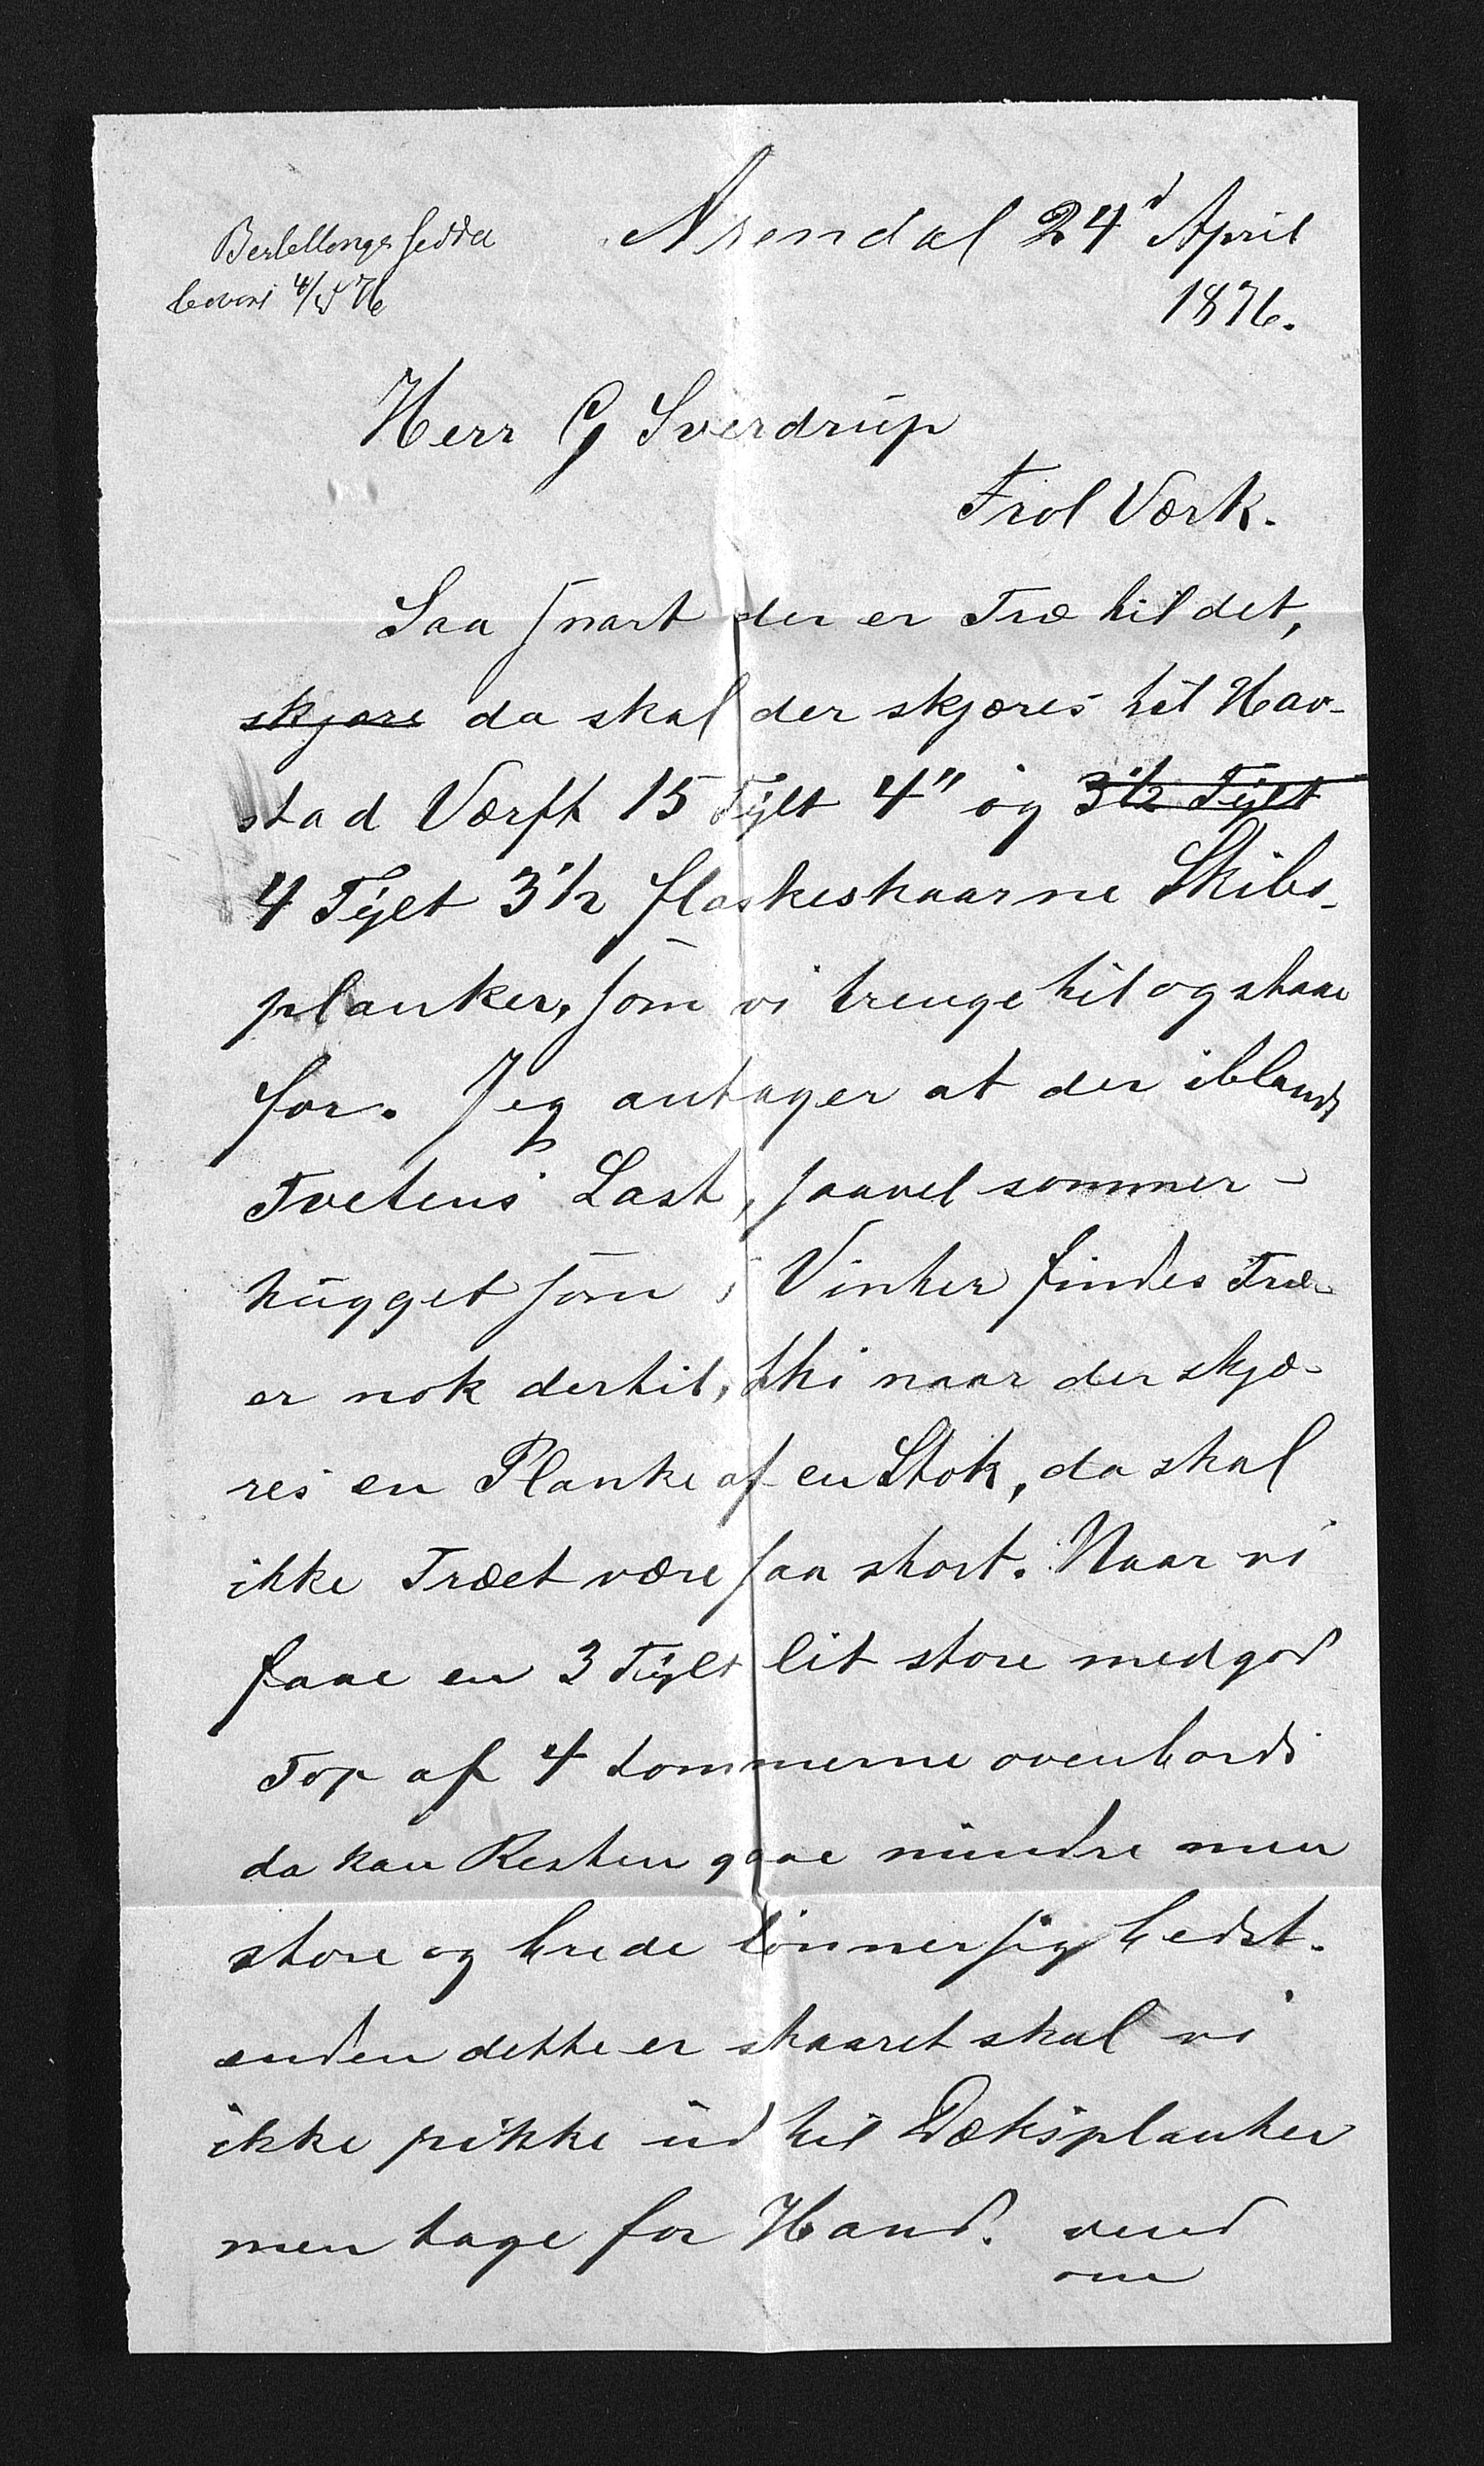 Arendal 24d April
1876.
Bestellings seddel
levert 4/5 76
Herr G Sverdrup
Frol Værk.
Saa snart der er Træ til det,
skjære da skal der skjæres til Hav-
stad Værft 15 Tylt 4" og 3 1/2 Tylt
4 Tylt 3 1/2 flaskeskaarne Skibs-
planker, som vi trenge til og skaae
for. Jeg antager at der iblandt
Tvetens Last, saavel sommer-
hugget som i Vinter findes Træ-
er nok dertil, thi naar der skjæ-
res en Planke af en Stok, da skal
ikke Træet være saa stort. Naar vi
faae en 3 Tylt lit store med god
Top af 4 tommerne ovenbords
da kan Resten gaae mindre men
store og brede lönner sig bedst.
enden dette er skaaret skal vi
ikke pikke ud til Dæksplanker
men tage for Haand. vend
om